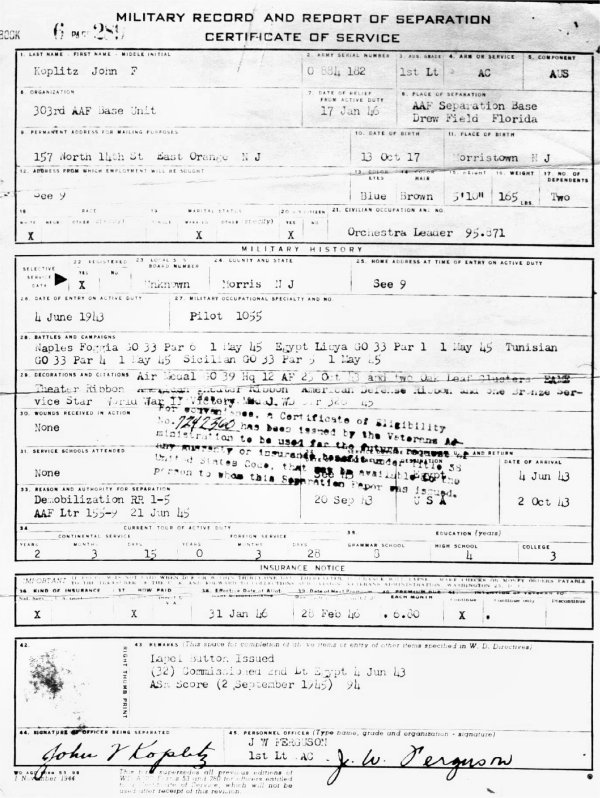 MILITARY RECORD AND REPORT OF SEPARATION
CERTIFICATE OF SERVICE
BOOK 6 PAGE 289
1. LAST NAME - FIRST NAME - MIDDLE INITIAL
Koplitz John F
2. ARMY SERIAL NUMBER
O 884 182
3. AUS. GRADE
1st Lt
4. ARM OR SERVICE
AC
5. COMPONENT
AUS
6. ORGANIZATION
303rd AAF Base Unit
7. DATE OF RELIEF FROM ACTIVE DUTY
17 Jan 46
8. PLACE OF SEPARATION
AAF Separation Base
Drew Field Florida
9. PERMANENT ADDRESS FOR MAILING PURPOSES
157 North 14th St East Orange N J
10. DATE OF BIRTH
13 Oct 17
11. PLACE OF BIRTH
Morristown N J
12. ADDRESS FROM WHICH EMPLOYMENT WILL BE SOUGHT
See 9
13. COLOR EYES
Blue
14. COLOR HAIR
Brown
15. HEIGHT
5'10"
16. WEIGHT
165 LBS.
17. NO. OF DEPENDENTS
Two
18. RACE
X
19. MARITAL STATUS
X
YES NO
X
21. CIVILIAN OCCUPATION AND NO.
Orchestra Leader 95.871
MILITARY HISTORY
SELECTIVE SERVICE DATA
22. REGISTERED
YES NO
X
BOARD NUMBER
Unknown
24. COUNTY AND STATE
Morris N J
25. HOME ADDRESS AT TIME OF ENTRY ON ACTIVE DUTY
See 9
26. DATE OF ENTRY ON ACTIVE DUTY
4 June 1943
27. MILITARY OCCUPATIONAL SPECIALTY AND NO.
Pilot 1055
28. BATTLES AND CAMPAIGNS
Naples Foggia GO 33 Par 6 1 May 45 Egypt Libya GO 33 Par 1 1 May 45 Tunisian
GO 33 Par 4 1 May 45 Sicilian GO 33 Par 5 1 May 45
29. DECORATIONS AND CITATIONS
Air Medal GO 39 Hq 12 AF 23 Oct and Two Oak Leaf Clusters
Theater Ribbon Theater Ribbon American Defense Ribbon and one Bronze Ser-
vice Star World War II Victory Medal 45
30. WOUNDS RECEIVED IN ACTION
None
For convenience, a Certificate of Eligibility
No. 7242360 has been issued by the Veterans Ad-
ministration to be used for the future request of
any guaranty or insurance benefit under Title 38
United States Code, that may be available to the
person to whom this Separation Paper was issued.
31. SERVICE SCHOOLS ATTENDED
None
AND RETURN
Egypt
DATE OF ARRIVAL
4 Jun 43
33. REASON AND AUTHORITY FOR SEPARATION
Demobilization RR 1-5
AAF Ltr 155-9 21 Jun 45
20 Sep 43
U S A
2 Oct 43
34. CURRENT TOUR OF ACTIVE DUTY
CONTINENTAL SERVICE
FOREIGN SERVICE
YEARS MONTHS DAYS YEARS MONTHS DAYS
2 3 15 0 3 28
35. EDUCATION (years)
GRAMMAR SCHOOL
8
HIGH SCHOOL
4
COLLEGE
3
INSURANCE NOTICE
IMPORTANT
36. KIND OF INSURANCE
X
37. HOW PAID
X
38. Effective Date of Allot-
31 Jan 46
28 Feb 46
EACH MONTH
6.80
X
42.
RIGHT THUMB PRINT
43. REMARKS (This space for completion of above items or entry of other items specified in W. D. Directives)
Lapel Button Issued
(32) Commissioned 2nd Lt Egypt 4 Jun 43
ASR Score (2 September 1945) 94
44. SIGNATURE OF OFFICER BEING SEPARATED
John F Koplitz
45. PERSONNEL OFFICER (Type name, grade and organization - signature)
J W FERGUSON
1st Lt AC
J. W. Ferguson
WD AGO FORM 53-98
1 November 1944
This form supersedes all previous editions of
for officers entitled
to a Certificate of Service, which will not be
used after receipt of this revision.